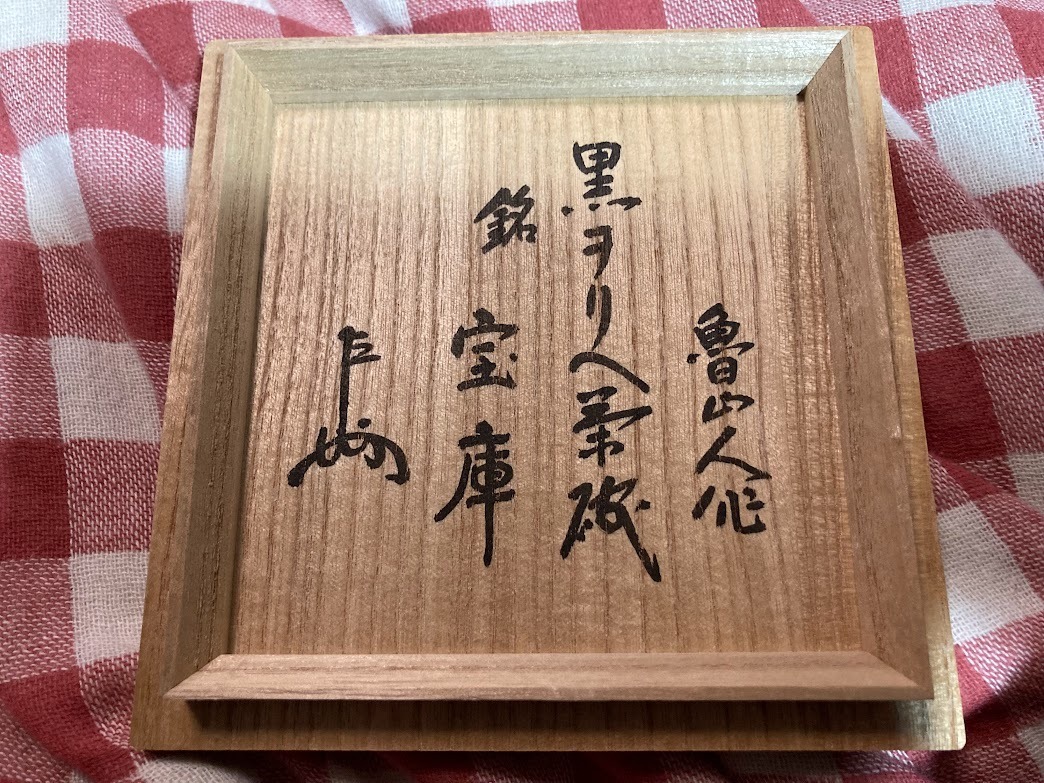 魯山人作
黒ヲリヘ茶碗
銘 宝庫